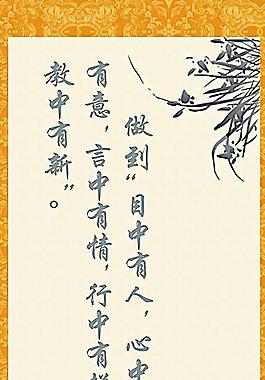 做到“目中有人，心中
有意，言中有情，行中有
教中有新”。